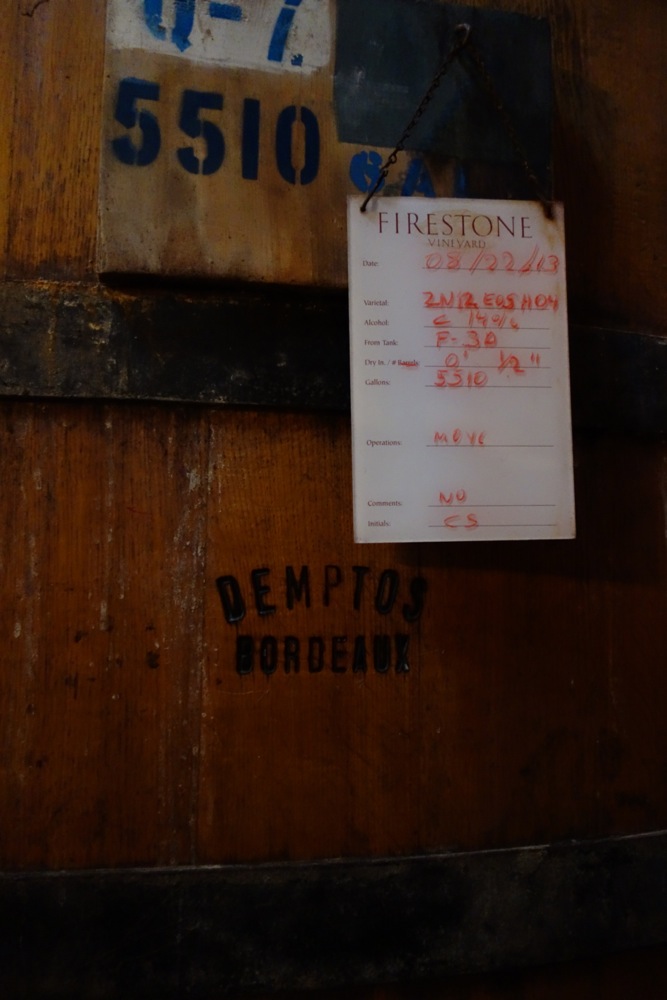 5510
GAL
FIRESTONE
VINEYARD
Date: 08/22/13
Varietal: ZN12 EOS H04
Alcohol: < 14%
From Tank: F-30
Dry In. / # Barrels: 0' 1/2"
Gallons: 5510
Operations: MOVE
Comments: NO
Initials: CS
DEMPTOS
BORDEAUX